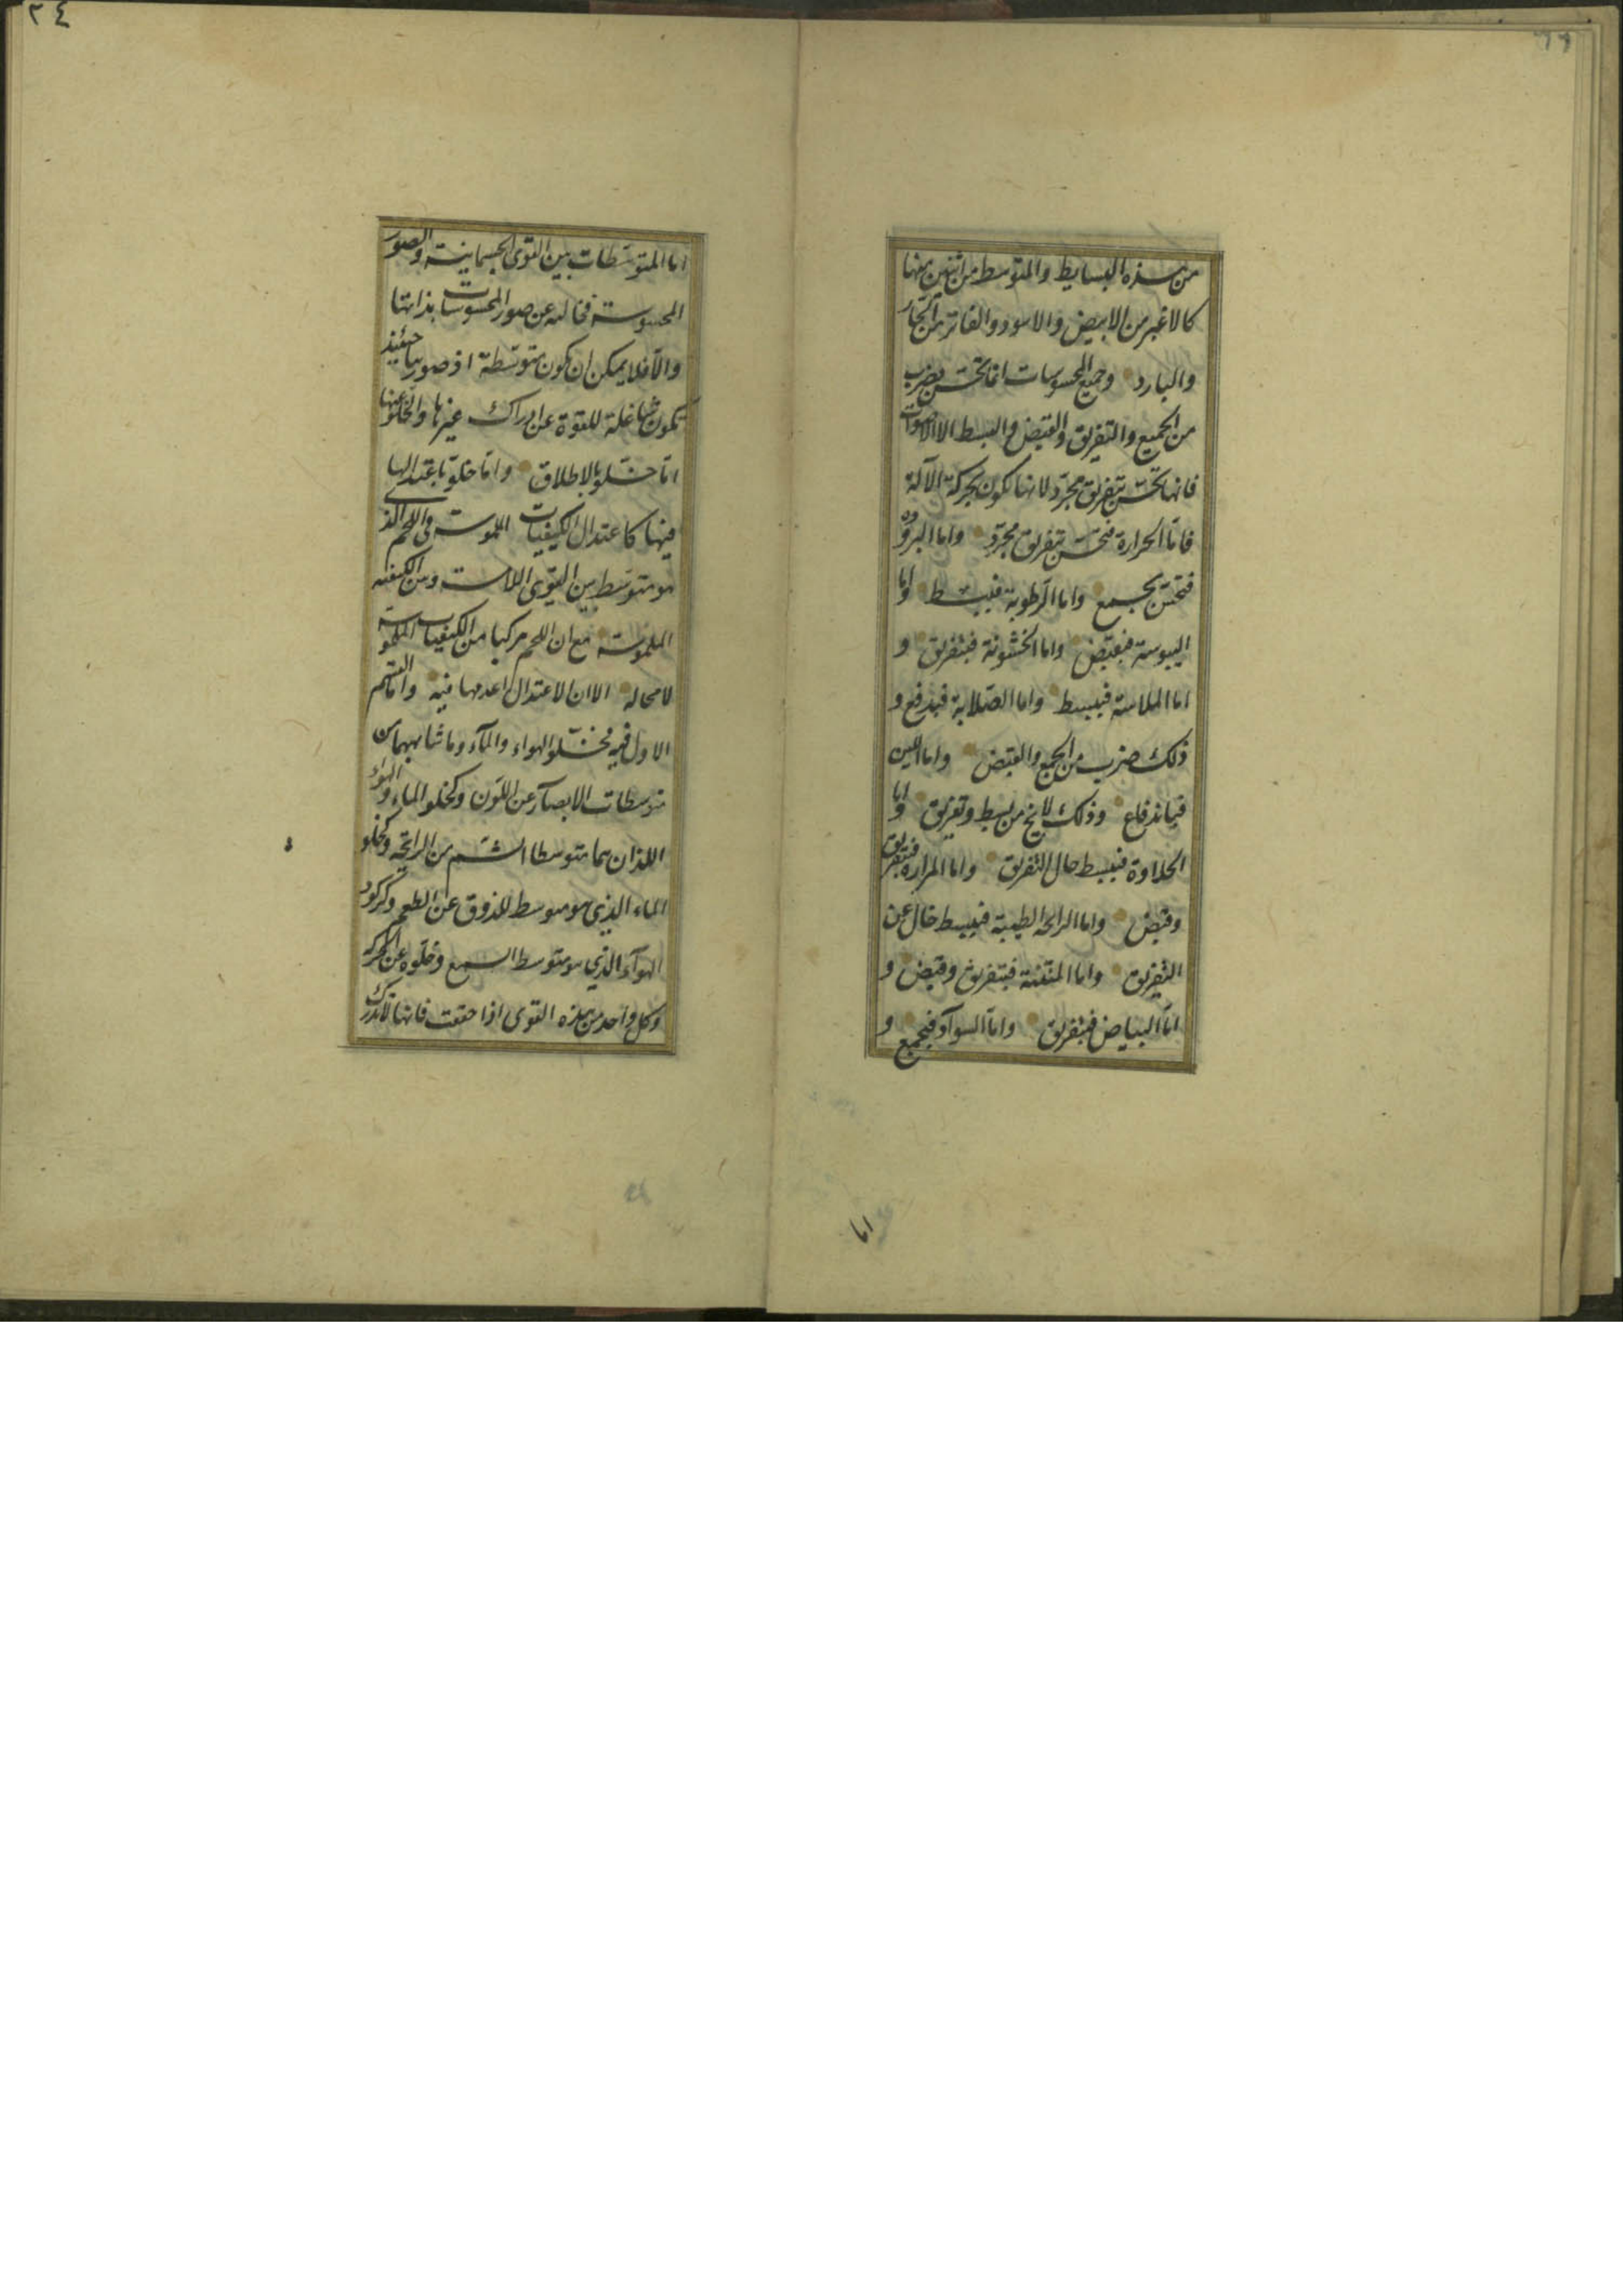 من هذه البسايط والمتوسط من اثنين منها
كالاغبر من الابيض والاسود والفاتر من الحار
والبارد وجميع المحسوسات انما تحس بضرب
من الجمع والتفريق والقبض والبسط الا الاصوات
فانها تحس بتفريق مجرد لانها تكون بحركة الآلة
فاما الحرارة فتحس بتفريق مجرد واما البرودة
فتحس بجمع واما الرطوبة فببسط واما
اليبوسة فبقبض واما الخشونة فبتفريق و
اما الملاسة فببسط واما الصلابة فبدفع و
ذلك ضرب من الجمع والقبض واما اللين
فباندفاع وذلك لايخ من بسط وتفريق واما
الحلاوة فببسط خال التفريق واما المرارة فبتفريق
وقبض واما الرايحة الطيبة فببسط خال عن
التفريق واما المنتنة فبتفريق وقبض و
اما البياض فبتفريق واما السواد فبجمع و
اما
٢٤
اما المتوسطات بين القوى الجسمانية والصور
المحسوسة فخالية عن صور المحسوسات بذاتها
والا فلا يمكن ان تكون متوسطة اذ صورها حينئذ
تكون شاغلة للقوة عن ادراك غيرها والخلو عنها
اما خلو بالاطلاق واما خلو باعتدالها
فيها كاعتدال الكيفيات الملموسة فى اللحم الذى
هو متوسط بين القوى اللامسة وبين الكيفية
الملموسة مع ان اللحم مركبا من الكيفيات الملموسة
لا محالة الا ان الاعتدال اعدمها فيه واما القسم
الاول فيه فخلو الهواء والمآء وما شابههما من
متوسطات الابصار عن اللون وكخلو الماء والهواء
اللذان هما متوسطا الشم من الرايحة وكخلو
الماء الذى هو متوسط للذوق عن الطعم وكركود
الهوآء الذي هو متوسط السمع وخلوه عن الحركة
وكل واحد من هذه القوى اذا حققت فانها تدرك